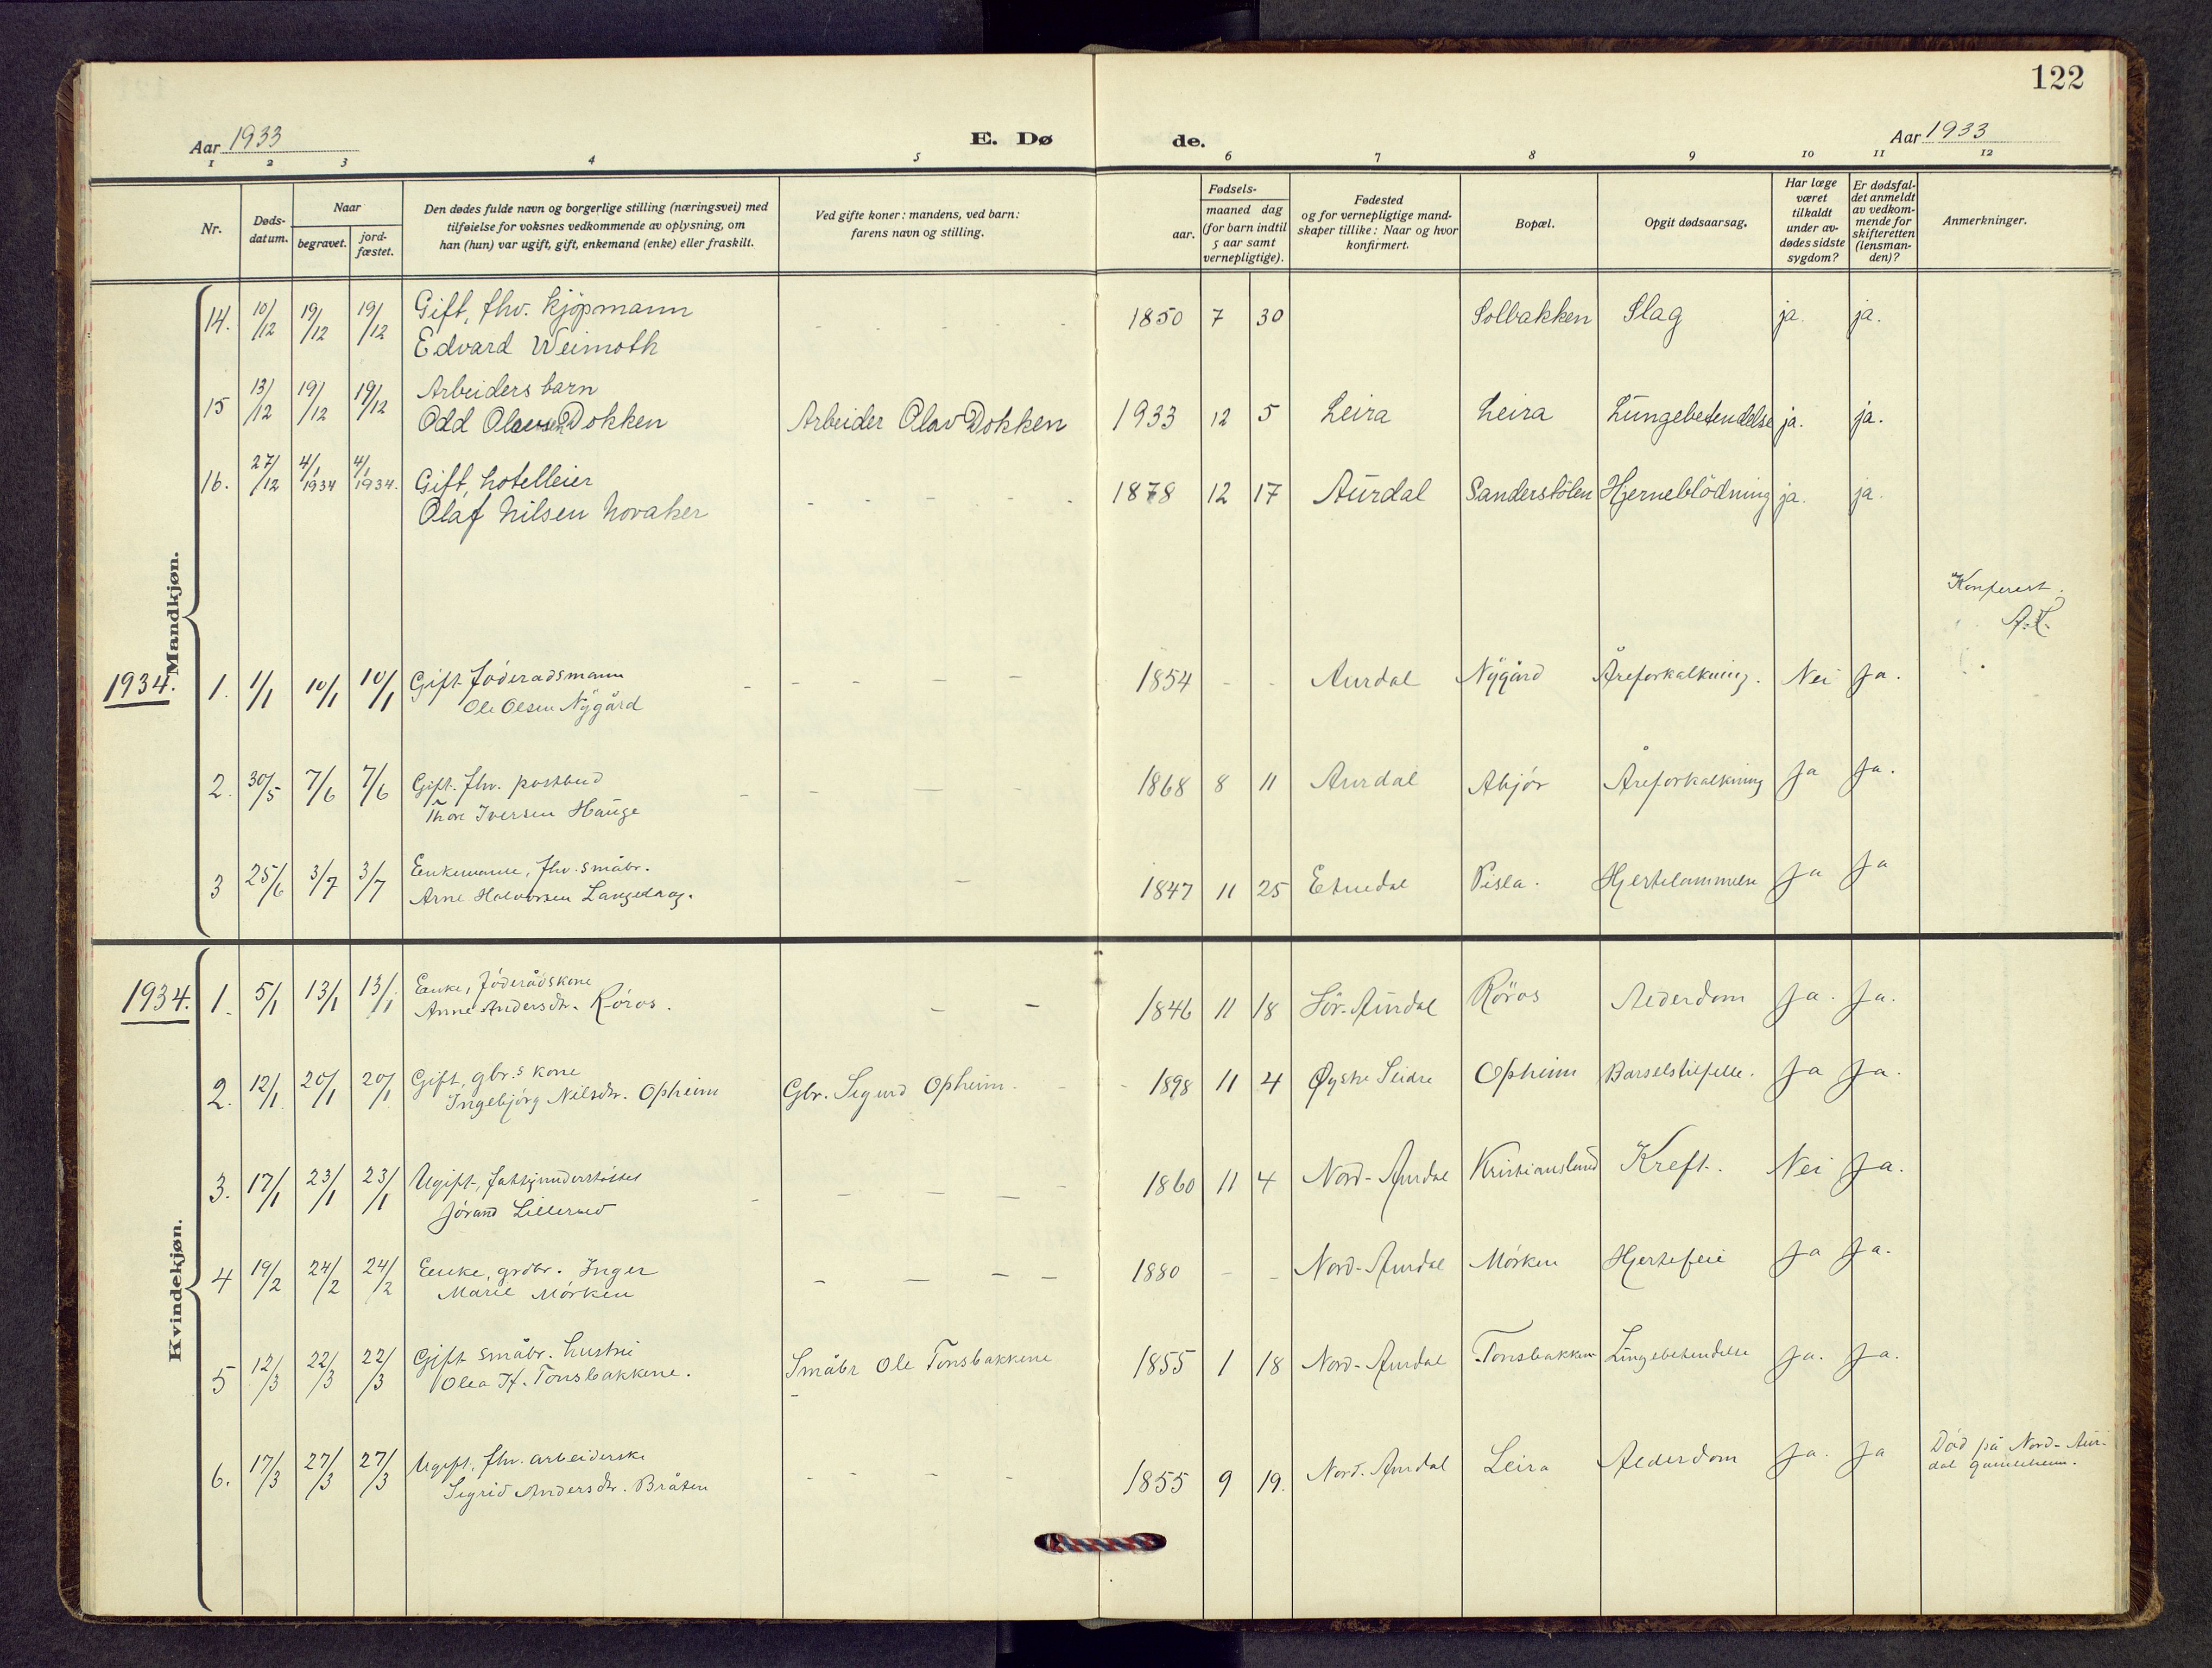 122
Aar 1933
E. Dø
de.
Aar 1933
1 2 3 4 5 6 7 8 9 10 11 12
Nr.
Døds-
datum.
Naar
begravet.
jord-
fæstet.
Den dødes fulde navn og borgerlige stilling (næringsvei) med
tilføielse for voksnes vedkommende av oplysning, om
han (hun) var ugift, gift, enkemand (enke) eller fraskilt.
Ved gifte koner: mandens, ved barn:
farens navn og stilling.
Fødsels-
aar.
maaned dag
(for barn indtil
5 aar samt
vernepligtige).
Fødested
og for vernepligtige mand-
skaper tillike: Naar og hvor
konfirmert.
Bopæl.
Opgit dødsaarsag.
Har læge
været
tilkaldt
under av-
dødes sidste
sygdom?
Er dødsfal-
det anmeldt
av vedkom-
mende for
skifteretten
(lensman-
den)?
Anmerkninger.
Mandkjøn.
14. 10/12 19/12 19/12 Gift, fhv. kjöpmann - - - - 1850 7 30 Solbakken Slag ja. ja.
Edvard Weimoth
15 13/12 19/12 19/12 Arbeiders barn
Odd Olavsen Dokken Arbeider Olav Dokken 1933 12 5 Leira Leira Lungebetendelse ja. ja.
16. 27/12 4/1 1934 4/1 1934. Gift, hotelleier - - - - 1878 12 17 Aurdal Sanderstölen Hjerneblödning ja. ja.
Olaf Nilsen Noraker
Konferert.
1934. 1. 1/1 10/1 10/1 Gift föderadsmann - - - - 1854 - - Aurdal Nygård Åreforkalkning. Nei Ja.
Ole Olsen Nygård
2. 30/5 7/6 7/6 Gift. fhv. postbud - - - - 1868 8 11 Aurdal Abjör Åreforkalkning Ja Ja.
Thore Iversen Hauge
3 25/6 3/7 3/7 Enkemann, fhv. småbr. - 1847 11 25 Etnedal Pisla. Hjertelammelse Ja Ja
Arne Halvorsen Langedrag.
Kvindekjøn.
1934. 1. 5/1 13/1 13/1 Enke, föderådskone - - 1846 11 18 Sör-Aurdal Röros Alderdom Ja. Ja.
Anne Andersdtr. Röros.
2. 12/1 20/1 20/1 Gift, gbr.s kone
Ingebjörg Nilsdtr. Opheim Gbr. Sigurd Opheim. 1898 11 4 Øystre Slidre Opheim Barselstilfelle. Ja Ja.
3. 17/1 23/1 23/1 Ugift, fattigunderstöttet - - - - 1860 11 4 Nord-Aurdal Kristianslund Kreft. Nei Ja.
Jörand Lillerud
4 19/2 24/2 24/2 Enke, grdbr. Inger - - - - 1880 - - Nord-Aurdal Mörken Hjertefeil Ja Ja.
Marie Mörken
5 12/3 22/3 22/3 Gift småbr. hustru
Olea H. Tonsbakkene. Småbr Ole Tonsbakkene 1855 1 18 Nord-Aurdal Tonsbakken Lungebetendelse Ja. Ja.
6. 17/3 27/3 27/3 Ugift, fhv. arbeiderske - - - - 1855 9 19. Nord-Aurdal Leira Alderdom Ja. Ja Död på Nord-Aur-
Sigrid Andersdtr. Bråten dal gamleheim.